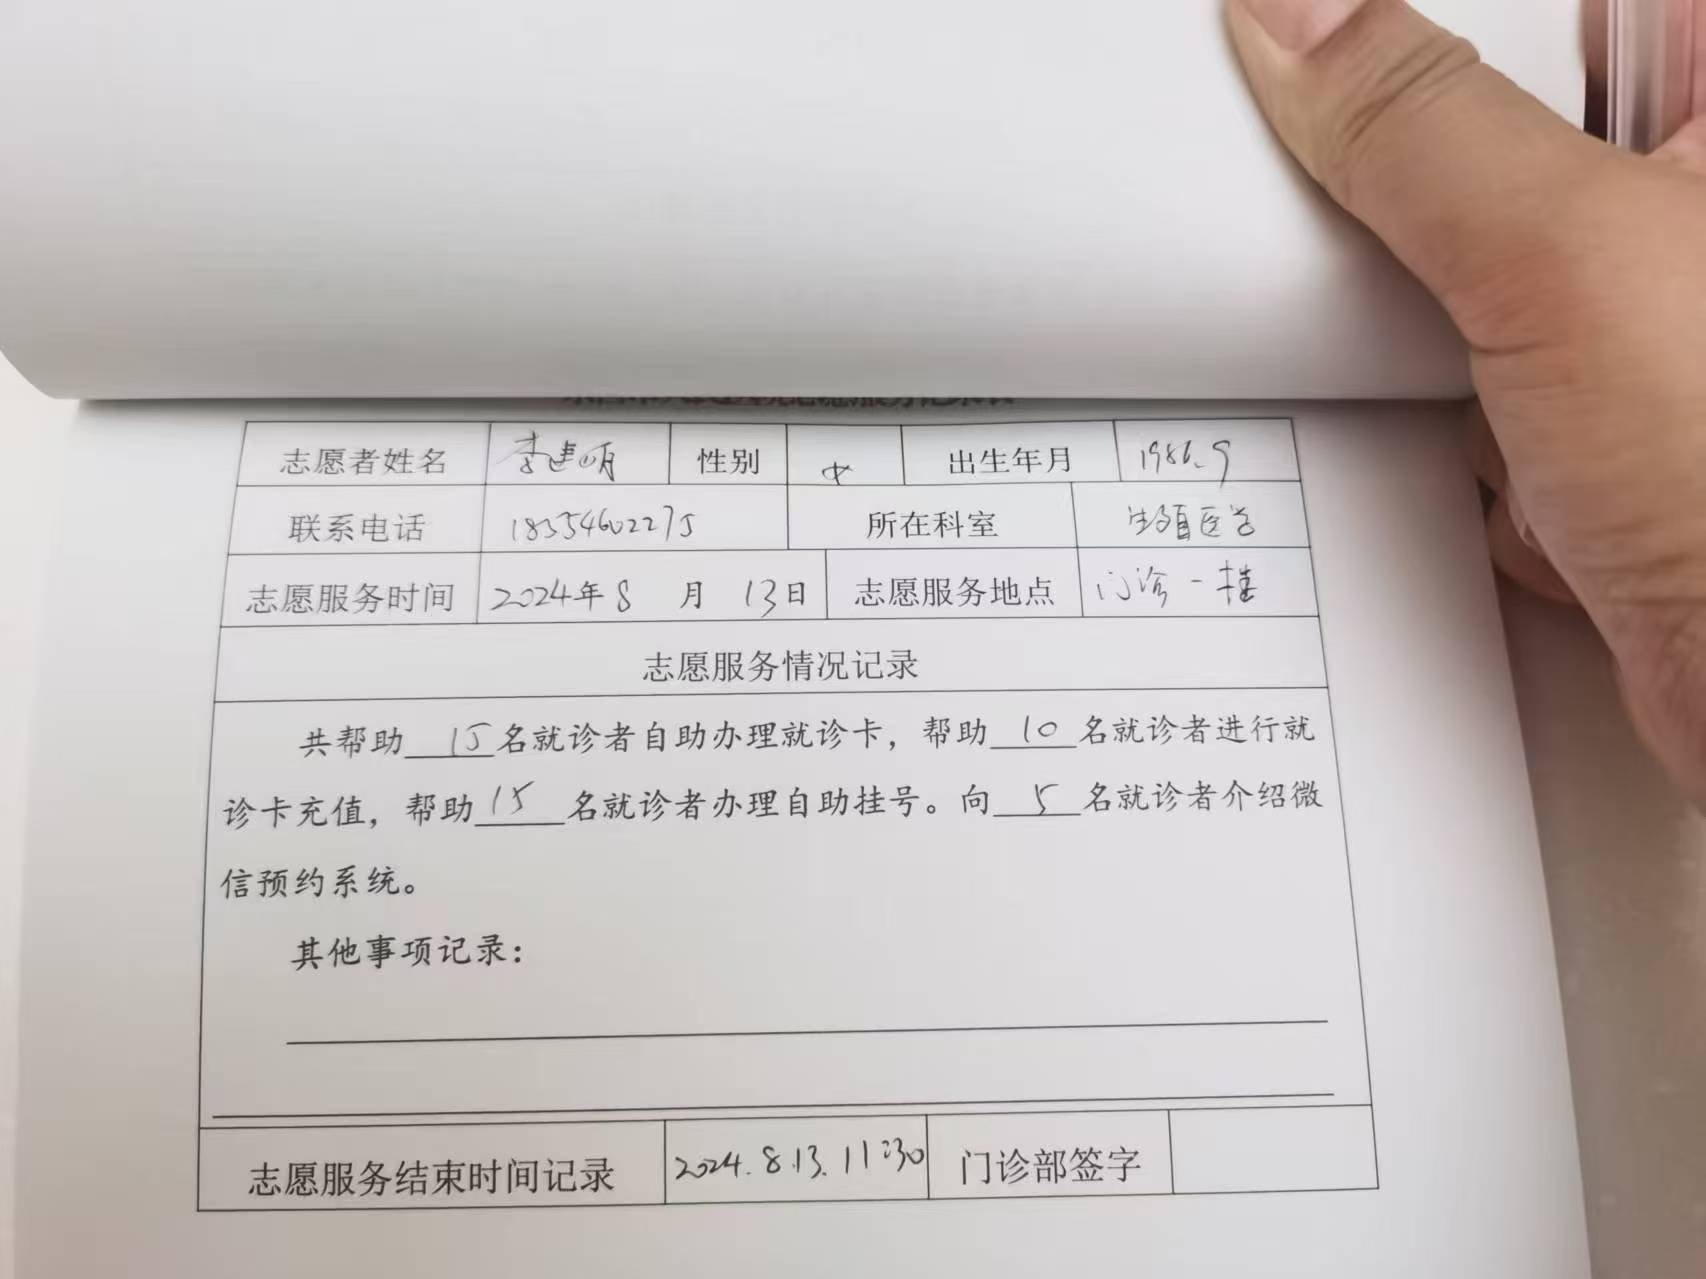 志愿者姓名 李建明 性别 女 出生年月 1986.9
联系电话 18354602275 所在科室 生殖医学
志愿服务时间 2024年8月13日 志愿服务地点 门诊一楼
志愿服务情况记录
共帮助15名就诊者自助办理就诊卡，帮助10名就诊者进行就
诊卡充值，帮助15名就诊者办理自助挂号。向5名就诊者介绍微
信预约系统。
其他事项记录：
志愿服务结束时间记录 2024.8.13.11:30 门诊部签字